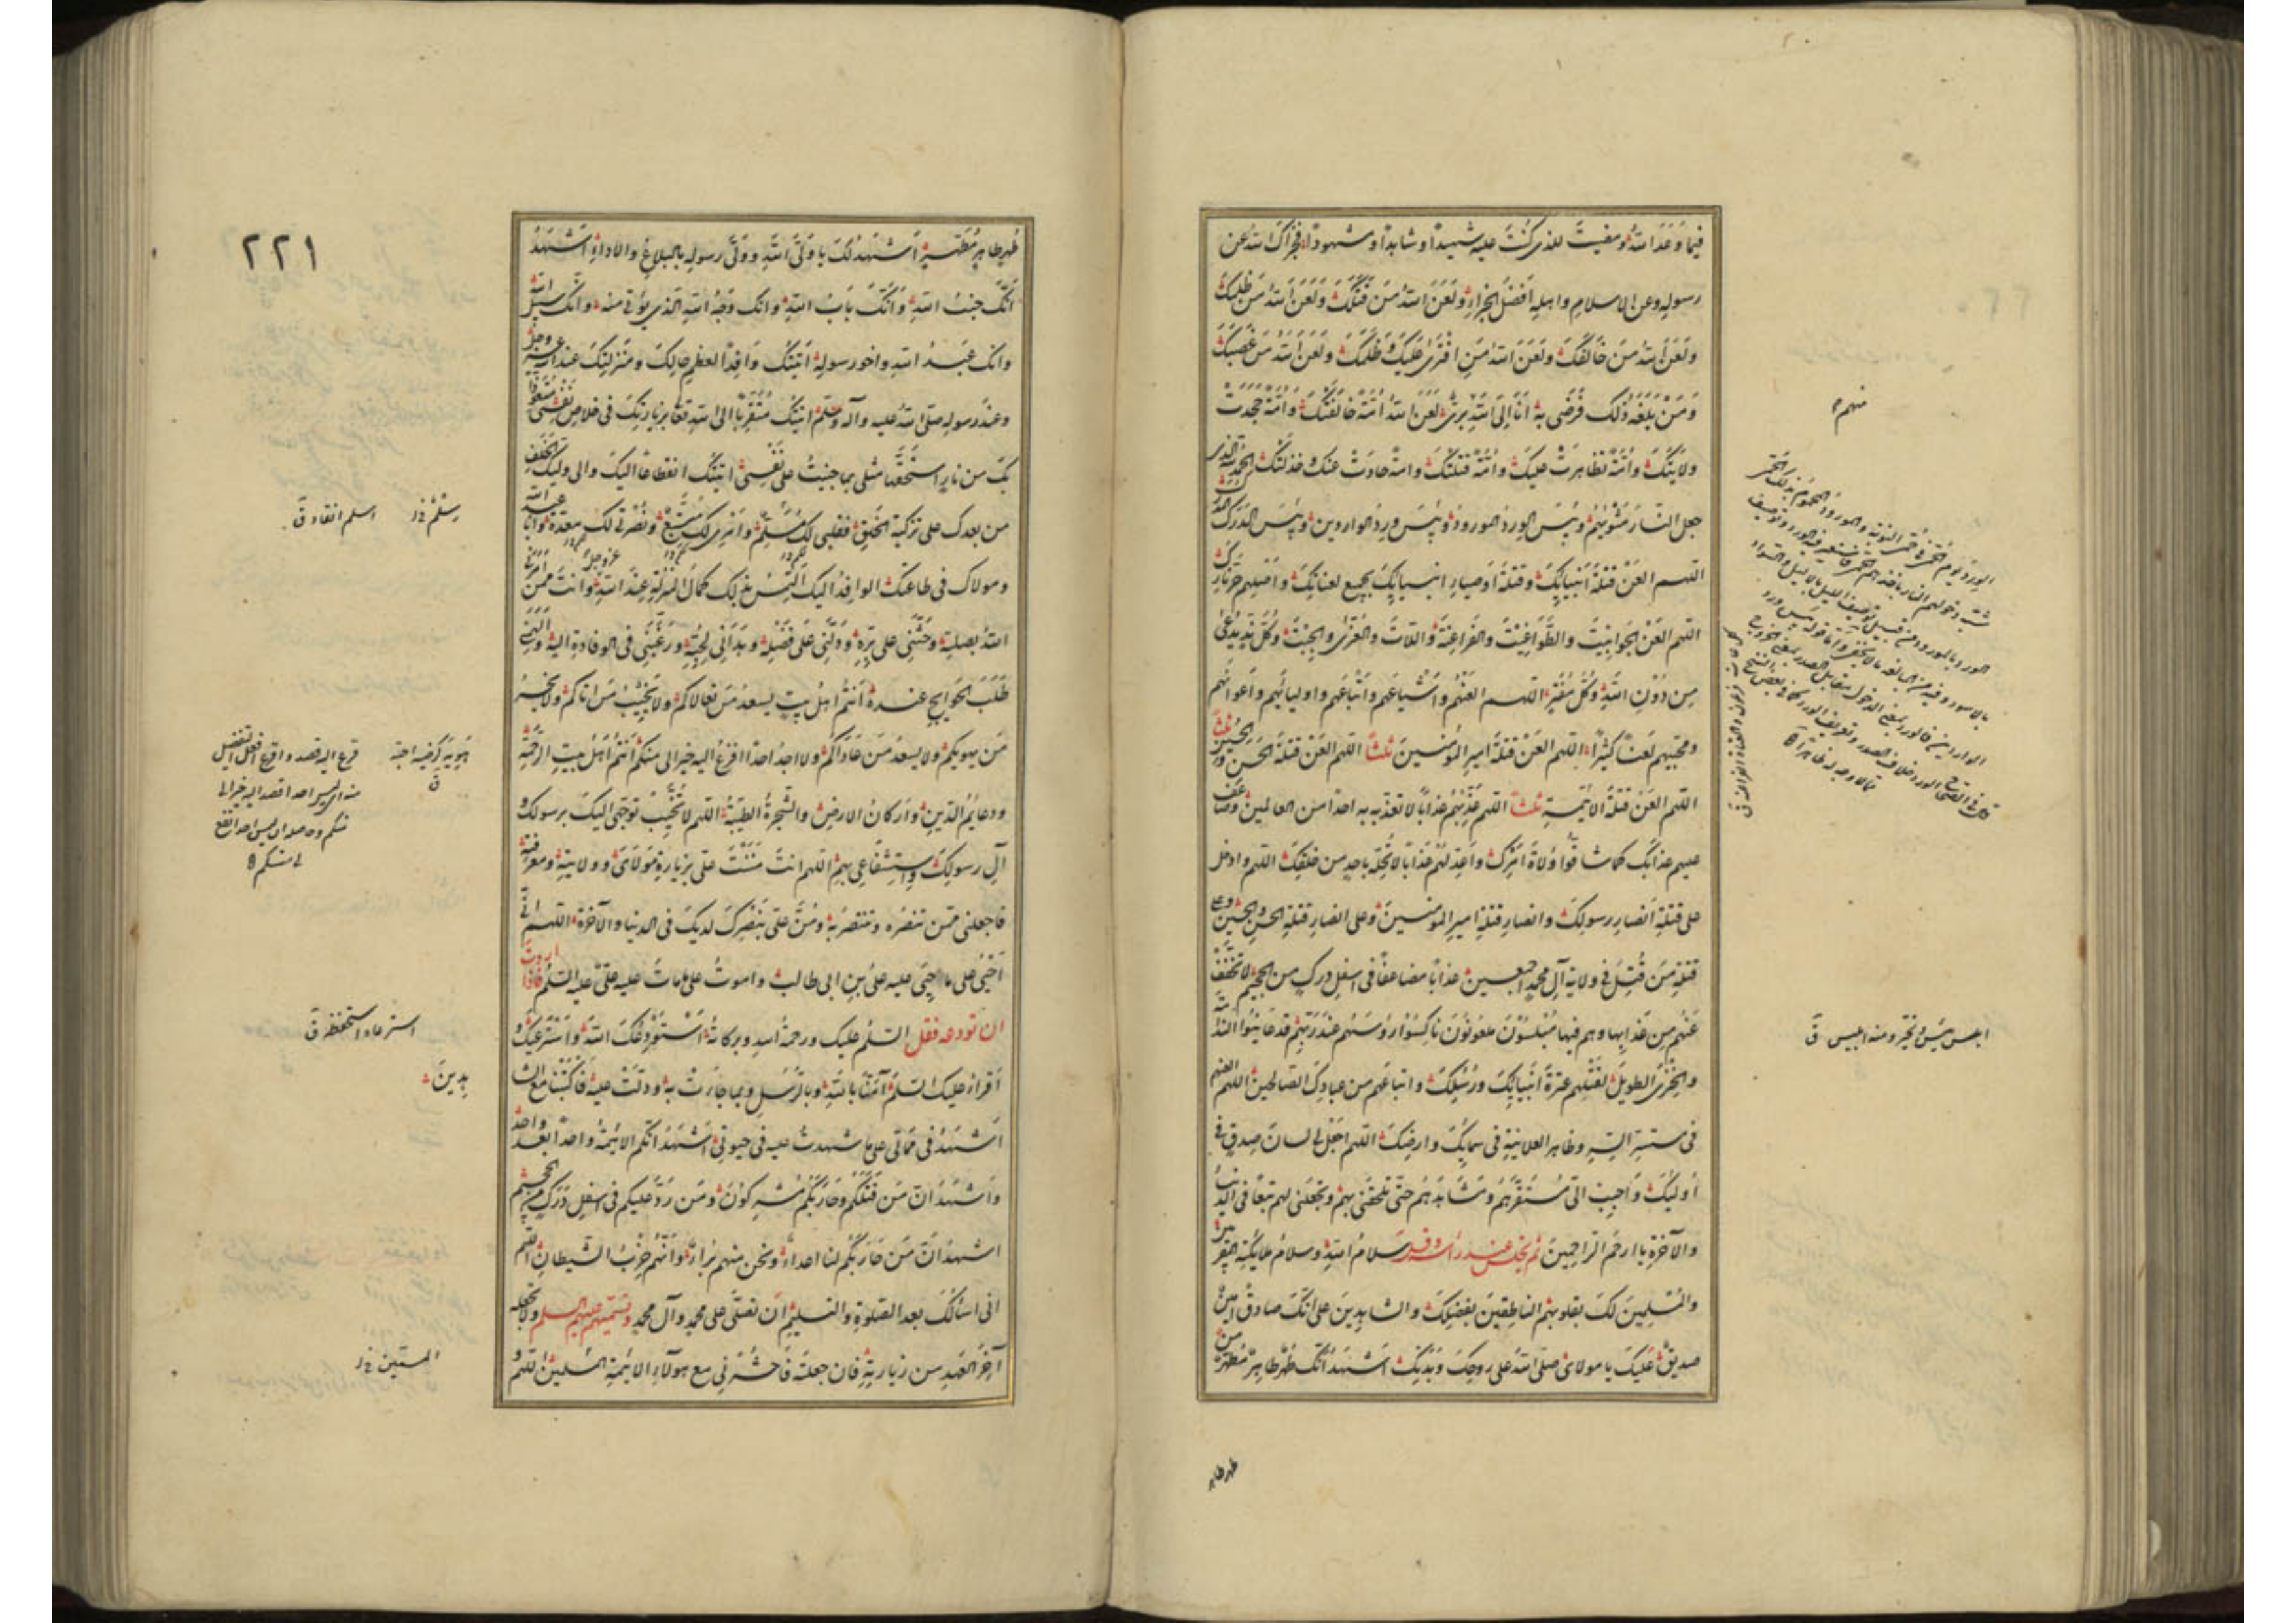 فيما وَعَدَ اللهُ ومضيتَ للذي كُنتَ عليه شهيداً وشاهداً ومشهوداً فجزاك الله عن
رسوله وعن الاسلام واهله افضل الجزاء ولَعَنَ اللهُ مَن قَتَلَكَ ولَعَنَ اللهُ مَن ظلمك
ولَعَنَ اللهُ مَن خالفك ولَعَنَ اللهُ مَن افترى عليك وظلمك ولعن الله من غصبك
ومَن بلغه ذلك فرضي به انا الى الله بريء لعن الله امة خالفتك وامة جحدت
ولايتك وامة تظاهرت عليك وامة قتلتك وامة حادت عنك وخذلتك الحمد لله الذي
جعل النار مثويهم وبئس الورد المورود وبئس ورد الواردين وبئس الدرك المدرك
اللهم العن قتلة انبيائك وقتلة اوصياء انبيائك بجميع لعناتك واصلهم حر نارك
اللهم العن الجوابيت والطواغيت والفراعنة واللات والعزى والجبت وكل ند يدعى
من دون الله وكل مفتر اللهم العنهم واشياعهم واتباعهم واوليائهم واعوانهم
ومحبيهم لعناً كثيراً اللهم العن قتلة امير المؤمنين ثلثاً اللهم العن قتلة الحسن والحسين ثلثاً
اللهم العن قتلة الائمة ثلثاً اللهم عذبهم عذاباً لا تعذبه به احداً من العالمين وضاعف
عليهم عذابك كما شاقوا ولاة امرك واعد لهم عذاباً لا تحله باحد من خلقك اللهم وادخل
على قتلة انصار رسولك وانصار قتلة امير المؤمنين وعلى انصار قتلة الحسن والحسين وعلى
قتلة من قتل في ولاية آل محمد اجمعين عذاباً مضاعفاً في اسفل درك من الجحيم لا تخفف
عنهم من عذابها وهم فيها مبلسون ملعونون ناكسوا رؤسهم عند ربهم قد عاينوا الندامة
والخزي الطويل لقتلهم عترة انبيائك ورسلك واتباعهم من عبادك الصالحين اللهم العنهم
في مستسر السر وظاهر العلانية في سمائك وارضك اللهم اجعل لي لسان صدق في
اوليائك واحبب الي مستقرهم ومشاهدهم حتى تلحقني بهم وتجعلني لهم تبعاً في الدنيا
والآخرة يا ارحم الراحمين ثم تجلس عند راسه وقل سلام الله وسلام ملائكته المقربين
والمسلمين لك بقلوبهم الناطقين بفضلك والشاهدين على انك صادق امين
صديق عليك يا مولاي صلى الله على روحك وبدنك اشهد انك طهر طاهر مطهر من
منهم
ابلس يئس وتحير ومنه ابليس ق
طهر طاهر
٢٢١
طهر طاهر مطهر اشهد لك يا ولي الله وولي رسوله بالبلاغ والاداء اشهد
انك جنب الله وانك باب الله وانك وجه الله الذي يؤتى منه وانك سبيل الله
وانك عبد الله واخو رسوله اتيتك وافداً لعظيم حالك ومنزلتك عند الله عز وجل
وعند رسوله صلى الله عليه وآله وسلم اتيتك متقرباً الى الله تعالى بزيارتك في خلاص نفسي متعوذاً
بك من نار استحقها مثلي بما جنيت على نفسي اتيتك انقطاعاً اليك والى وليك الخلف
من بعدك على تزكية الخلق فقلبي لك مسلم وامري لك متبع ونصرتي لك معدة وانا عبد الله
ومولاك في طاعتك الوافد اليك التمس بذلك كمال المنزلة عند الله وانت ممن امرني
الله بصلته وحثني على بره ودلني على فضله وهداني لحبه ورغبني في الوفادة اليه والهمني
طلب الحوايج عنده انتم اهل بيت يسعد من تولاكم ولا يخيب من اتاكم ولا يخسر
من يهويكم ولا يسعد من عاداكم ولا اجد احداً افزع اليه خيراً لي منكم انتم اهل بيت الرحمة
ودعائم الدين واركان الارض والشجرة الطيبة اللهم لا تخيب توجهي اليك برسولك و
آل رسولك واستشفاعي بهم اللهم انت مننت علي بزيارة مولاي وولايته ومعرفته
فاجعلني ممن تنصره وتنتصر به ومن علي بنصرك لدينك في الدنيا والآخرة اللهم اني
احيى على ما حيي عليه علي بن ابي طالب واموت على ما مات عليه علي عليه السلم فاذا اردت
ان تودعه فقل السلم عليك ورحمة الله وبركاته استودعك الله واسترعيك و
اقرا عليك السلم آمنا بالله وبالرسل وبما جاءت به ودلت عليه فاكتبنا مع الشاهدين
اشهد في مماتي على ما شهدت عليه في حيوتي اشهد انكم الائمة واحداً بعد واحد
واشهد ان من قتلكم وحاربكم مشركون ومن رد عليكم في اسفل درك من الجحيم
اشهد ان من حاربكم لنا اعداء ونحن منهم براء وانهم حزب الشيطان اللهم
اني اسألك بعد الصلوة والتسليم ان تصلي على محمد وآل محمد وتسميهم عليهم السلم ولا تجعله
آخر العهد من زيارته فان جعلته فاحشرني مع هؤلاء الائمة المسلمين اللهم و
اسلم انقاد ق
هويه كرضيه احبه ق
استرعاه استحفظه ق